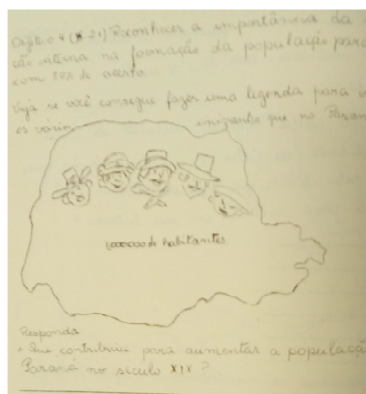 Objetivo 4 (2) Reconhecer a importância da
ção interna na formação da população para
com 80% de acerto.
Veja se você consegue fazer uma legenda para
os vários imigrantes que no Paraná
1.000.000 de habitantes.
Responda
Que contribuiu para aumentar a população
Paraná no século XIX?